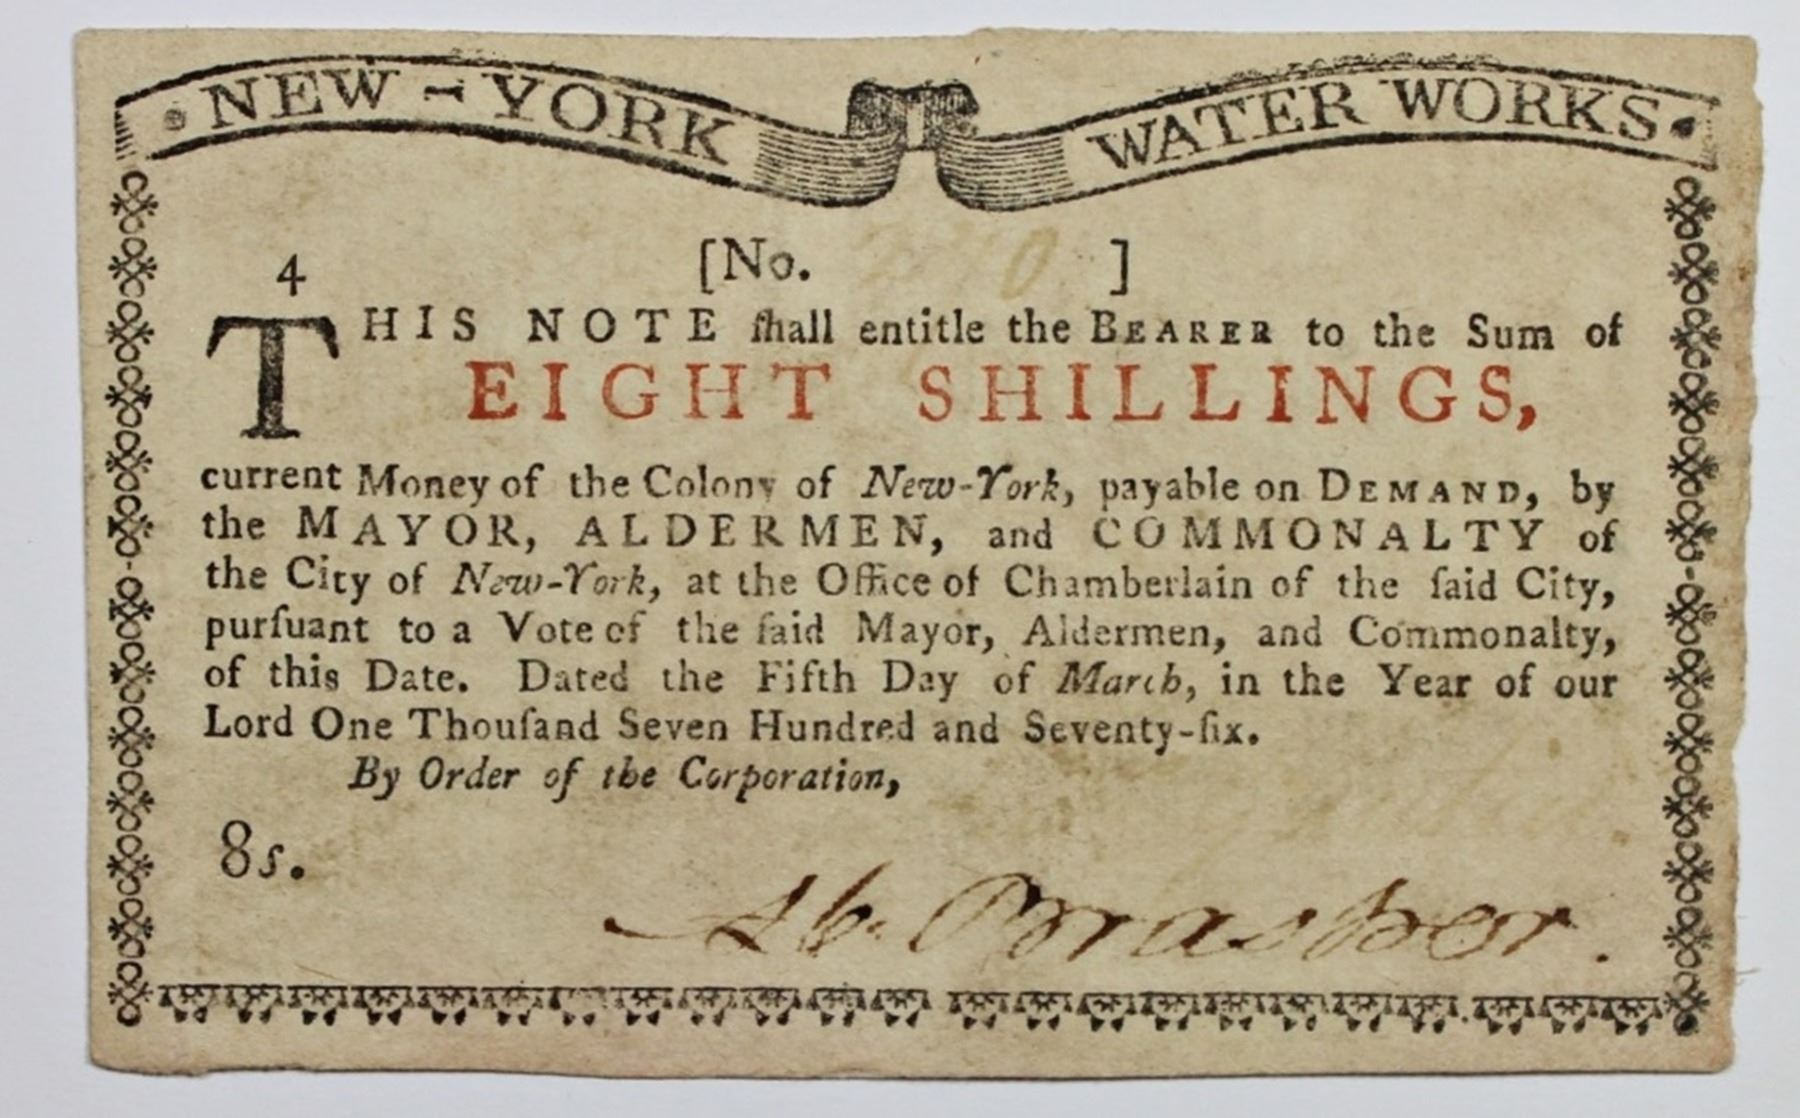 NEW-YORK WATER WORKS
[No. ]
4
THIS NOTE ſhall entitle the BEARER to the Sum of
EIGHT SHILLINGS,
current Money of the Colony of New-York, payable on DEMAND, by
the MAYOR, ALDERMEN, and COMMONALTY of
the City of New-York, at the Office of Chamberlain of the ſaid City,
purſuant to a Vote of the ſaid Mayor, Aldermen, and Commonalty,
of this Date. Dated the Fifth Day of March, in the Year of our
Lord One Thouſand Seven Hundred and Seventy-ſix.
By Order of the Corporation,
8s.
Ab. Brasher.